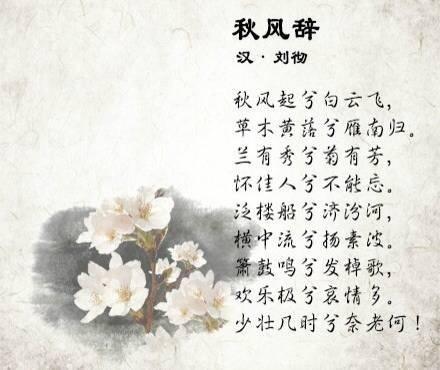 秋风辞
汉·刘彻
秋风起兮白云飞，
草木黄落兮雁南归。
兰有秀兮菊有芳，
怀佳人兮不能忘。
泛楼船兮济汾河，
横中流兮扬素波。
箫鼓鸣兮发棹歌，
欢乐极兮哀情多。
少壮几时兮奈老何！